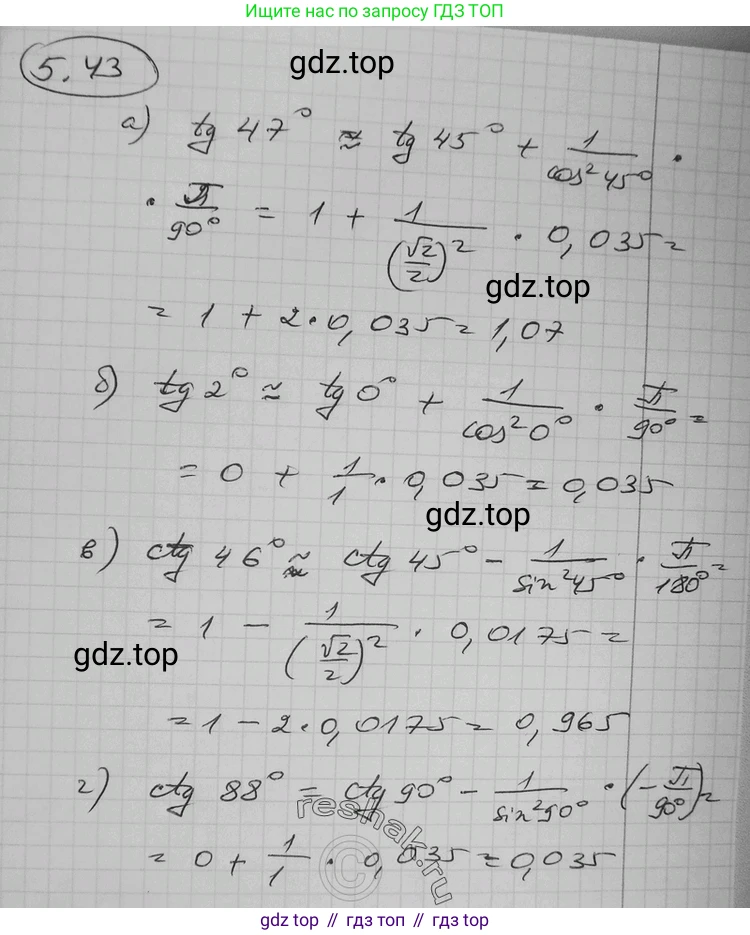 Ищите нас по запросу ГДЗ ТОП
5.43
gdz.top
а) tg 47° ≈ tg 45° + 1/cos²45° ·
· π/90° = 1 + 1/(√2/2)² · 0,035 =
gdz.top
= 1 + 2·0,035 = 1,07
б) tg 2° ≈ tg 0° + 1/cos²0° · π/90° =
= 0 + 1/1 · 0,035 = 0,035
gdz.top
в) ctg 46° ≈ ctg 45° - 1/sin²45° · π/180° =
= 1 - 1/(√2/2)² · 0,0175 =
gdz.top
= 1 - 2·0,0175 = 0,965
г) ctg 88° = ctg 90° - 1/sin²90° · (-π/90°) =
reshak.ru
= 0 + 1/1 · 0,035 = 0,035
gdz top // гдз топ // gdz top // гдз топ